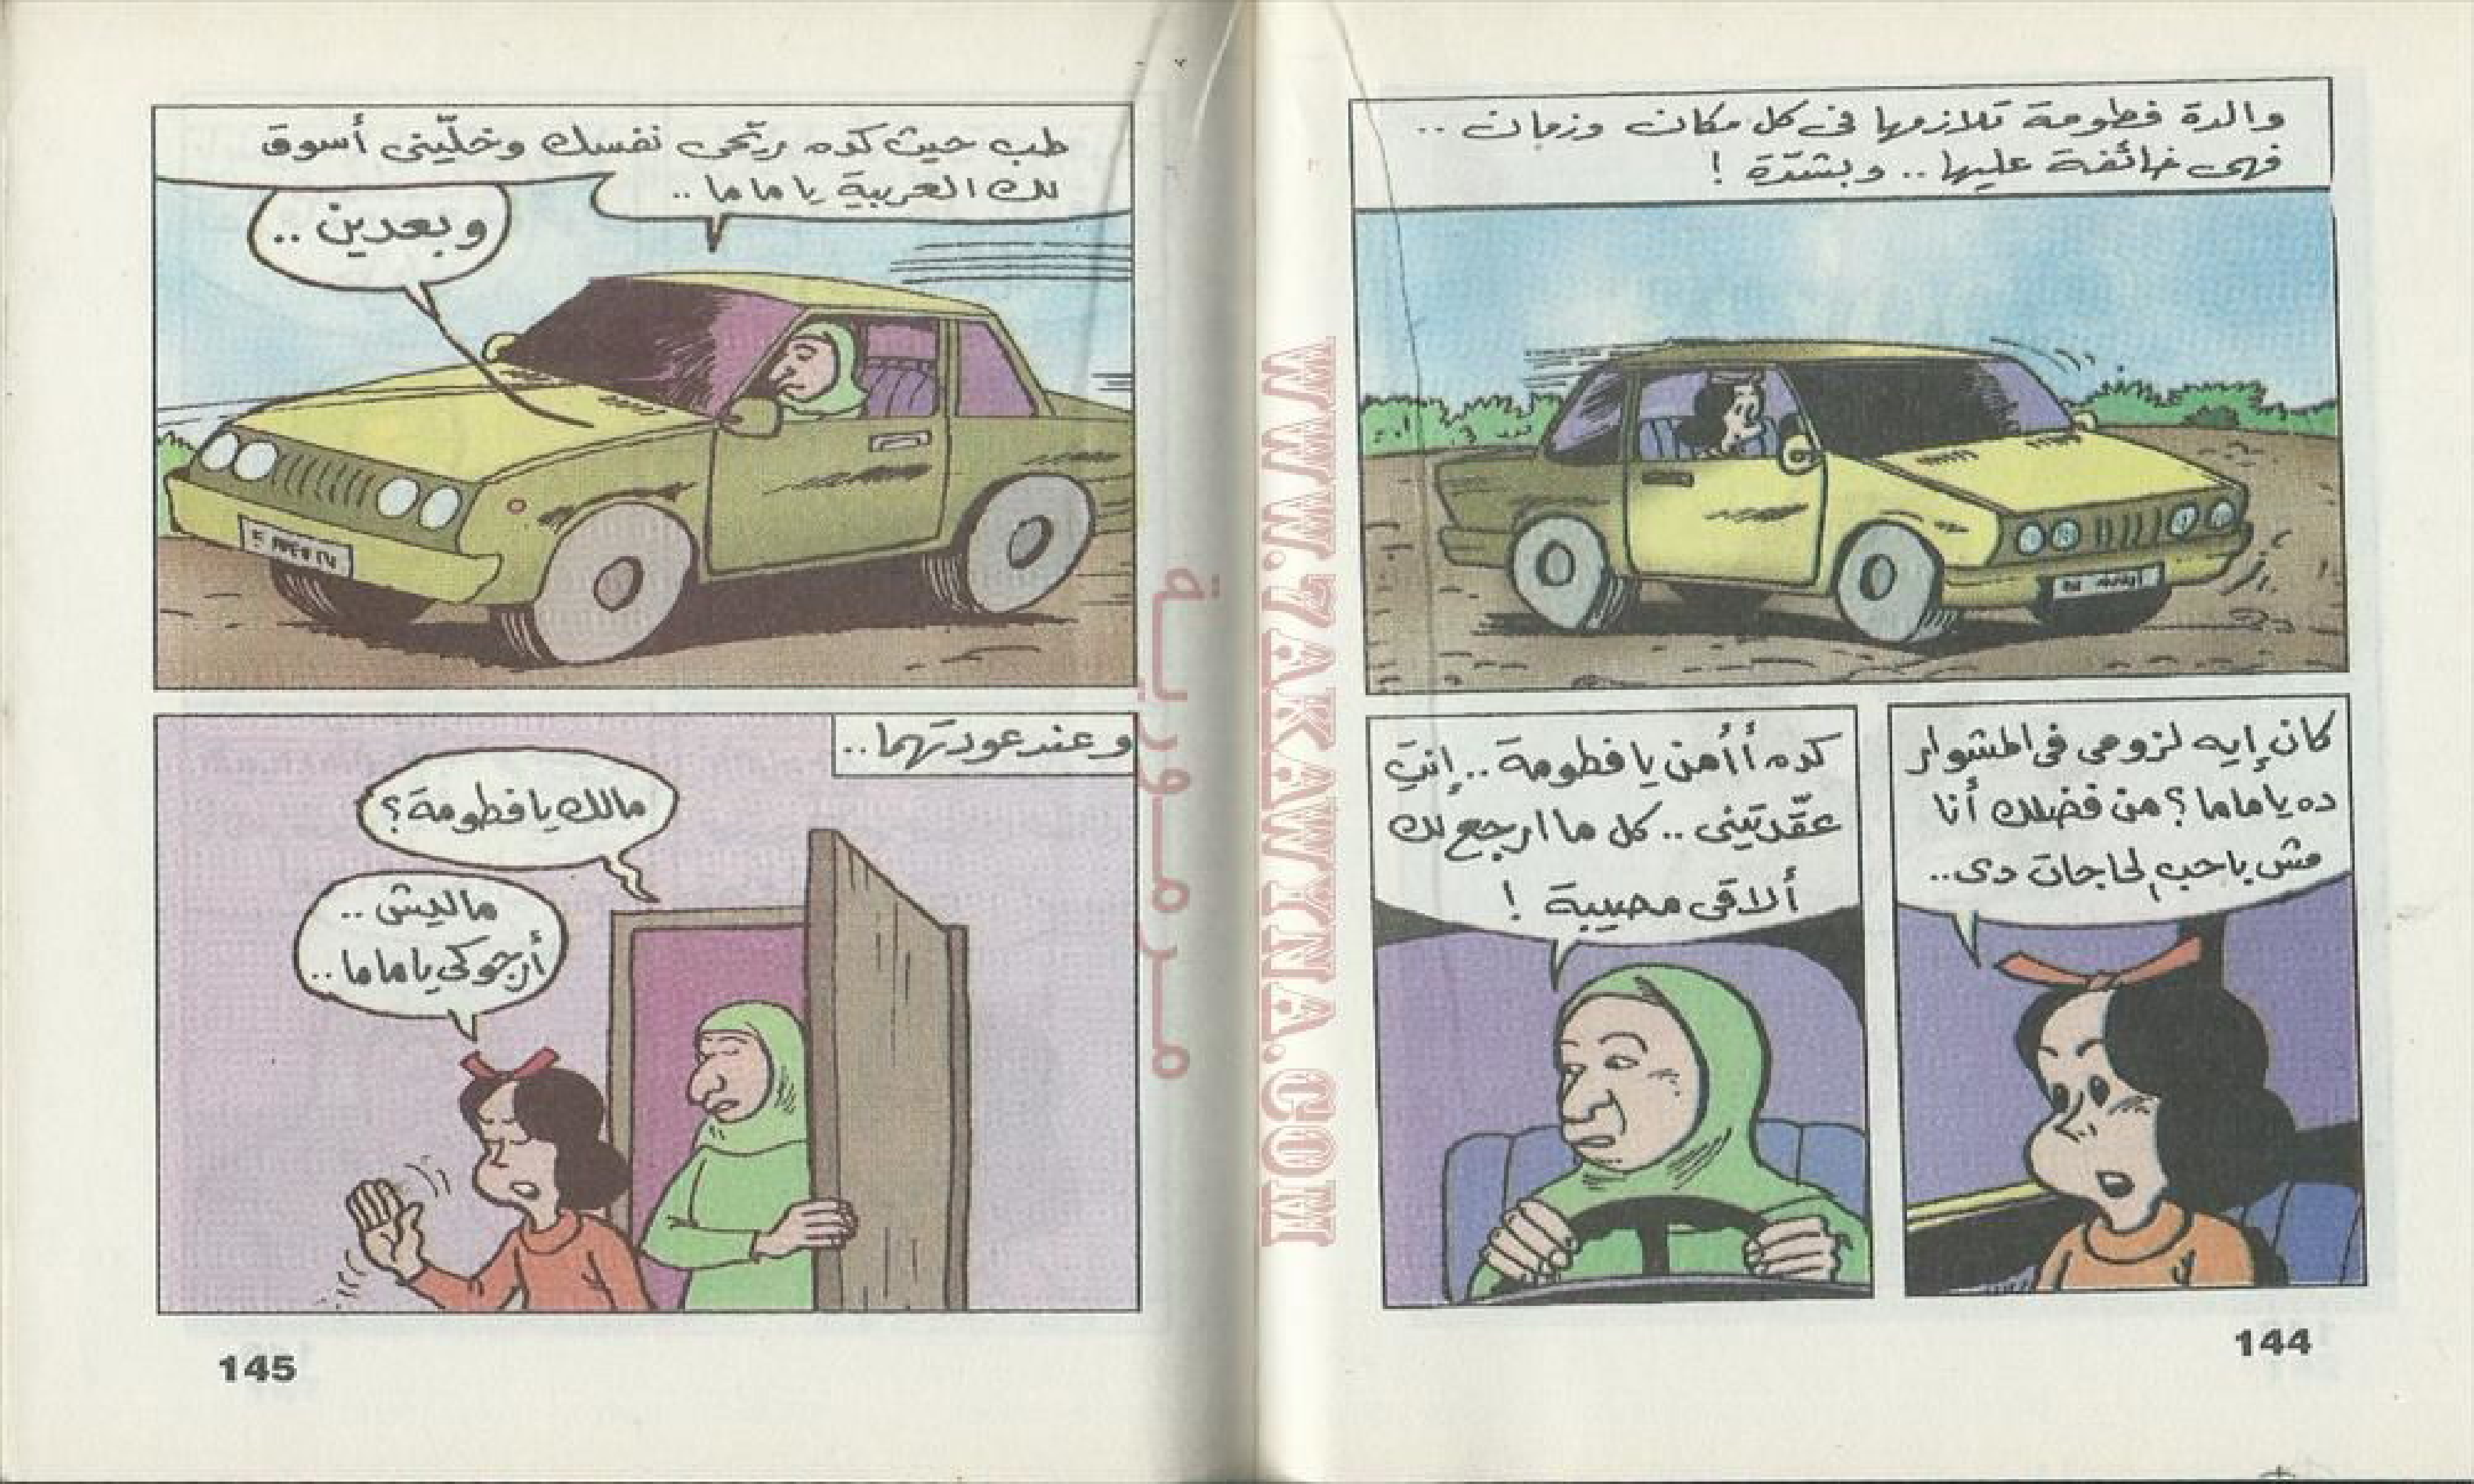 والدة فطومة تلازمها فى كل مكان وزمان ..
فهى خائفة عليها .. وبشدّة !
كان إيه لزومى فى المشوار
ده يا ماما ؟ من فضلك أنا
مش باحب الحاجات دى ..
كده أأمن يا فطومة .. إنتِ
عقّدتينى .. كل ما ارجع لك
ألاقى مصيبة !
144
طب حيث كده ريّحى نفسك وخلّينى أسوق
لك العربية يا ماما ..
وبعدين ..
وعند عودتهما ..
مالك يا فطومة ؟
ماليش ..
أرجوكى يا ماما ..
145
مرمورية
WWW.7AKAWYNA.COM